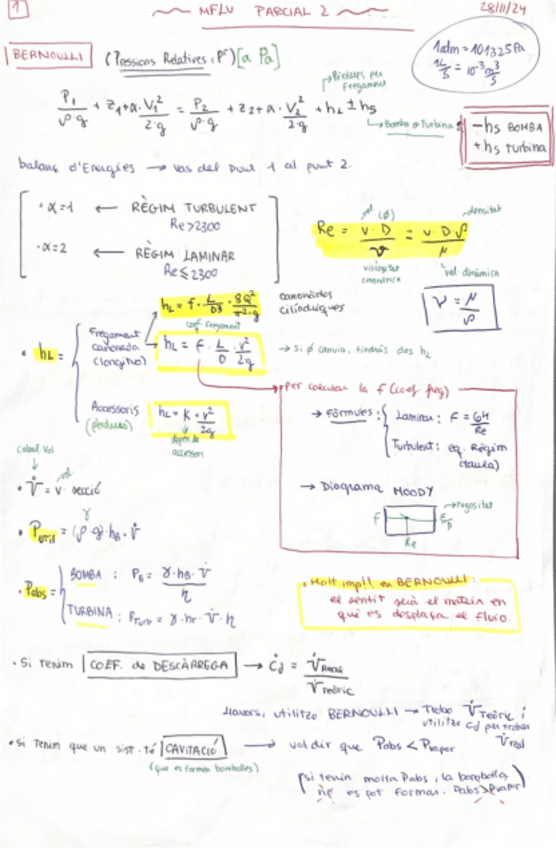 1
MFLU PARCIAL 2
28/11/24
BERNOULLI (Pressions Relatives, Pr) [a Pa]
1 atm = 101325 Pa
1 L/s = 10^-3 m³/s
Pèrdues per Fregament
P1/ρ·g + z1 + α·V1²/2·g = P2/ρ·g + z2 + α·V2²/2·g + hL ± hs
Bomba o Turbina
-hs BOMBA
+hs Turbina
balanç d'Energies → vas del punt 1 al punt 2.
·α=1 ← RÈGIM TURBULENT
Re>2300
·α=2 ← RÈGIM LAMINAR
Re≤2300
vel (Ø) densitat
Re = v·D/ν = v·D·ρ/μ
viscositat cinemàtica
vel. dinàmica
ν = μ/ρ
hL = f · L/D5 · 8Q²/π²·g
canonades cilíndriques
coef. fregament
· hL =
Fregament canonada (longitud)
hL = f · L/D · v²/2g → si Ø canvia, tindràs dos hL
Accessoris (pèrdues)
hL = K · v²/2g
depèn de accessori
Per calcular la f (coef freg)
→ Fórmules: Laminar: f = 64/Re
Turbulent: eq. Règim (taula)
→ Diagrama MOODY
Rugositat
f
Re
ε/D
cabal vol
vel.
· V̇ = v · secció
γ
· Pútil = (ρ·g)·hB·V̇
· Pabs =
BOMBA: PB = γ·hB·V̇/η
TURBINA: PTurb = γ·hT·V̇·η
· Molt impt!! en BERNOULLI:
el sentit serà el mateix en
què es desplaça el fluid.
· Si tenim COEF. de DESCÀRREGA → Cd = V̇Real/V̇Teòric
llavors, utilitzo BERNOULLI → Trobo V̇Teòric i
utilitzo Cd per trobar
V̇real
· Si Tenim que un sist. té CAVITACIÓ → vol dir que Pabs < Pvapor
(que es formen bombolles)
(si tenim molta Pabs, la bombolla
no es pot formar. Pabs > Pvapor)